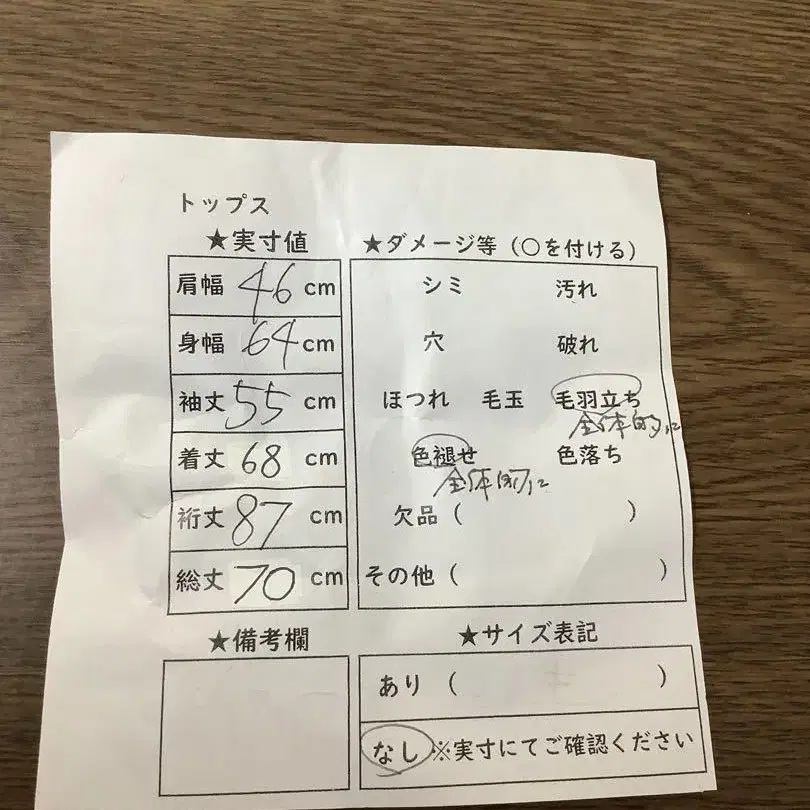 トップス
★実寸値
肩幅 46 cm
身幅 64 cm
袖丈 55 cm
着丈 68 cm
裄丈 87 cm
総丈 70 cm
★ダメージ等（○を付ける）
シミ 汚れ
穴 破れ
ほつれ 毛玉 毛羽立ち
全体的に
色褪せ 色落ち
全体的に
欠品（ ）
その他（ ）
★備考欄
★サイズ表記
あり（ ）
なし ※実寸にてご確認ください